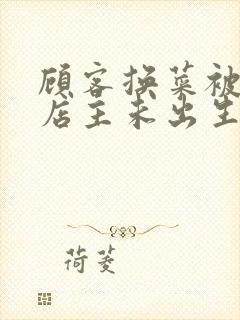 顾客换菜被
店主未出生
荷菱